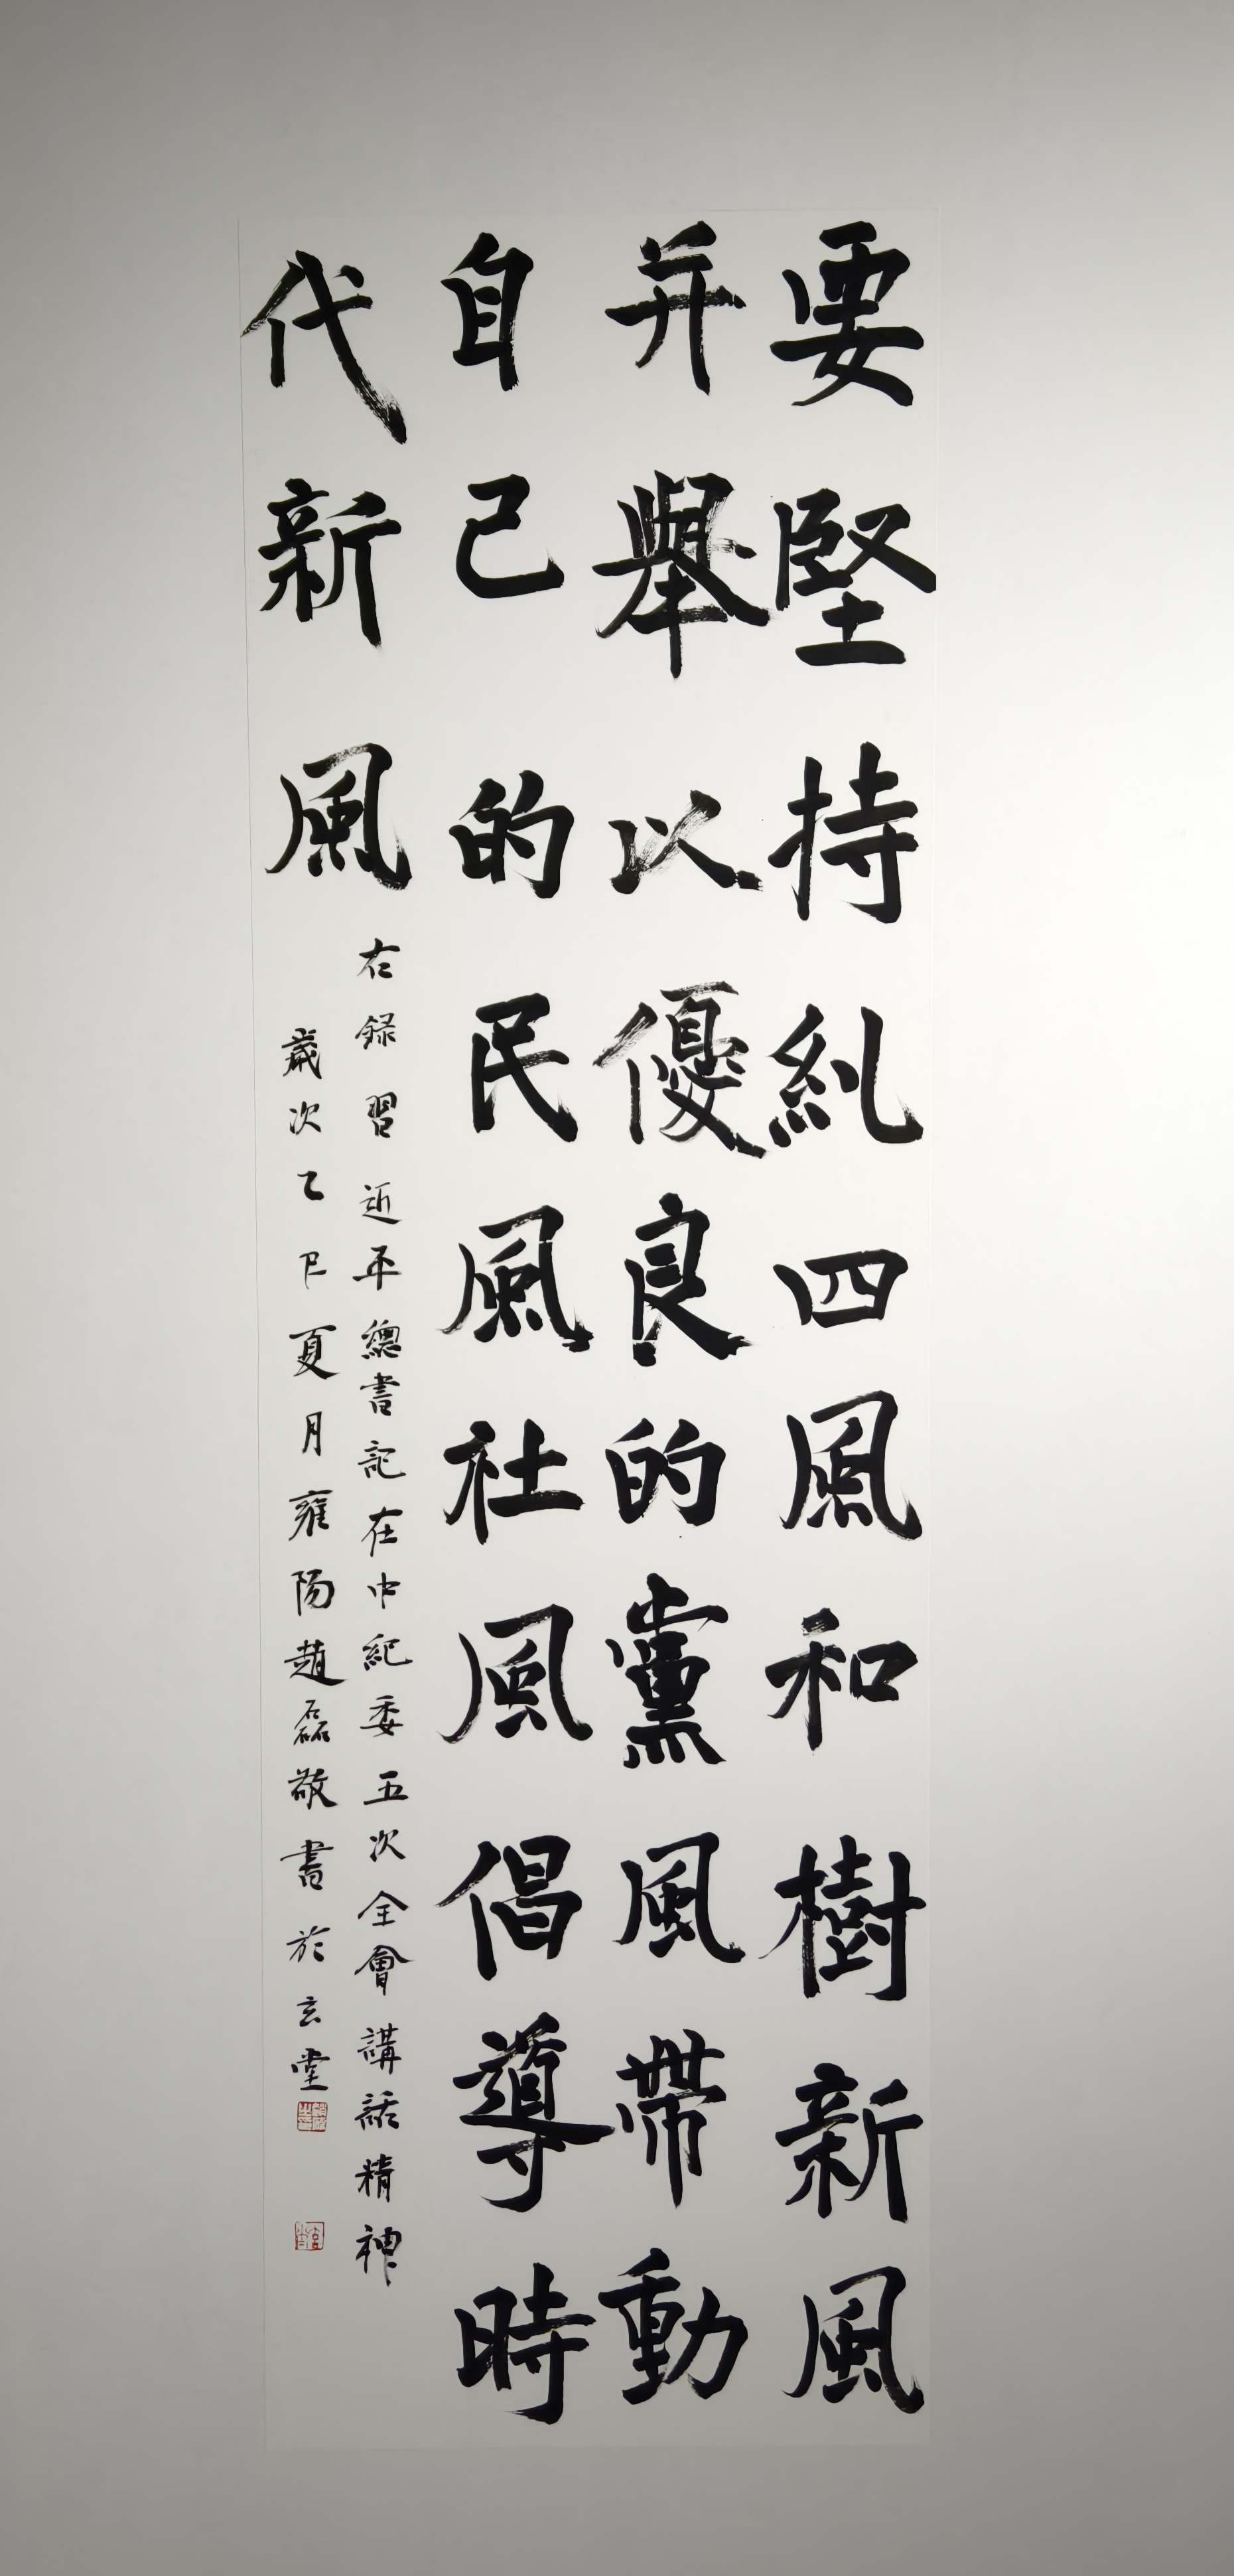 要堅持糾四風和樹新風
并舉以優良的黨風帶動
自己的民風社風倡導時
代新風
右録習近平總書記在中紀委五次全會講話精神
歲次乙巳夏月雍陽趙磊敬書於玄堂